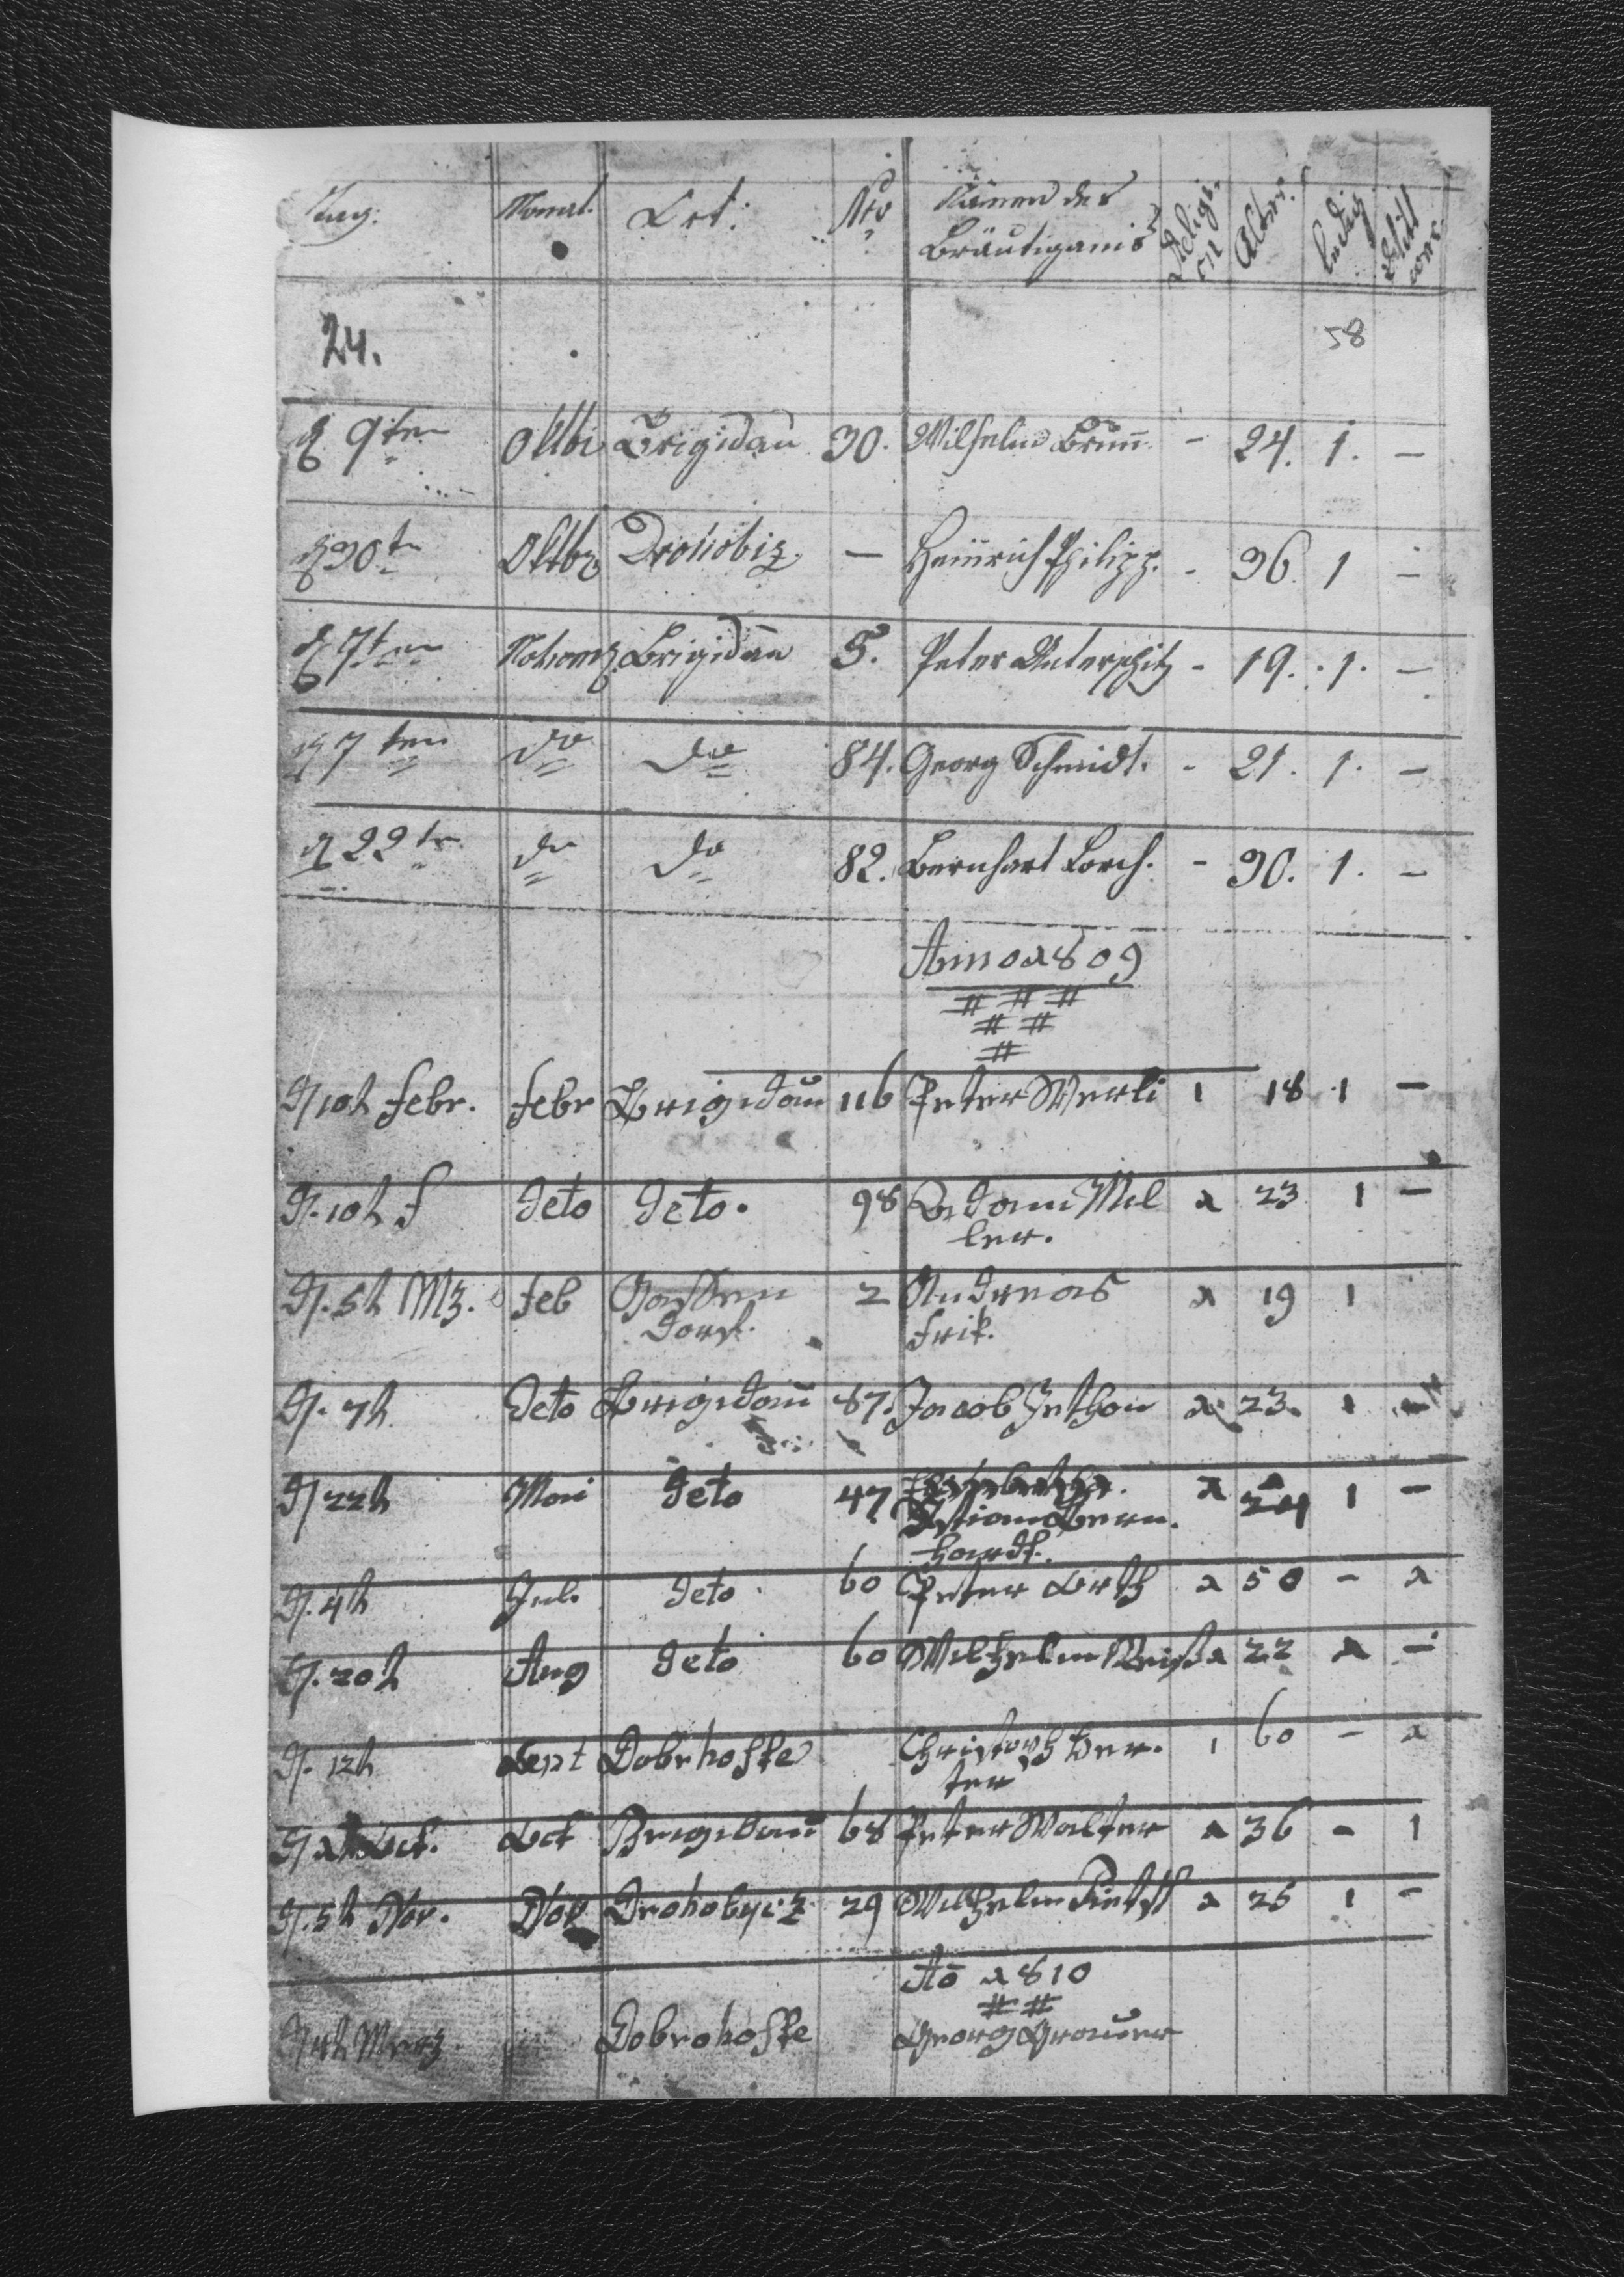 Tag: Monat. Ort: Nro Namen des
Bräutigams Religion Alter. ledig Wittwer
24. 58
d 9ten Oktbr Brigidau 30. Wilhelm Brun - 24. 1. -
d 30tn Oktbr Drohobiz - Heinrich Philipp. - 36. 1 -
d 7ten Novemb Brigidau 5. Peter - 19. 1. -
d 7ten do do 84. Georg Schmidt. - 21. 1. -
d 22tn do do 82. Bernhart Lorch. - 30. 1. -
Anno 1809
D 10h Febr. Febr Brigidau 116 Peter Werli 1 18 1 -
D. 10h F deto deto. 98 Adam Mil 1 23 1 -
ler.
D. 5h Mz. Feb 2 Andreas 1 19 1
dorf. Frik.
D. 7h deto Brigidau 87. Jacob 1 23. 1 -
D 22h Mai deto 47 1 24 1 -
stian Bern.
hardt.
D. 4h Jul. deto 60 Peter Orth 1 50 - 1
D. 20h Aug deto 60 Wilhelm 1 22 1 -
D. 12h Sept Dobrhoste Christoph 1 60 - 1
ter
D Oct. Oct Brigidau 68 Peter Walter 1 36 - 1
D. 5h Nov. Nov Drohobycz 29 Wilhelm 1 25 1 -
Ao 1810
Merz Dobrohoste Georg Grauer